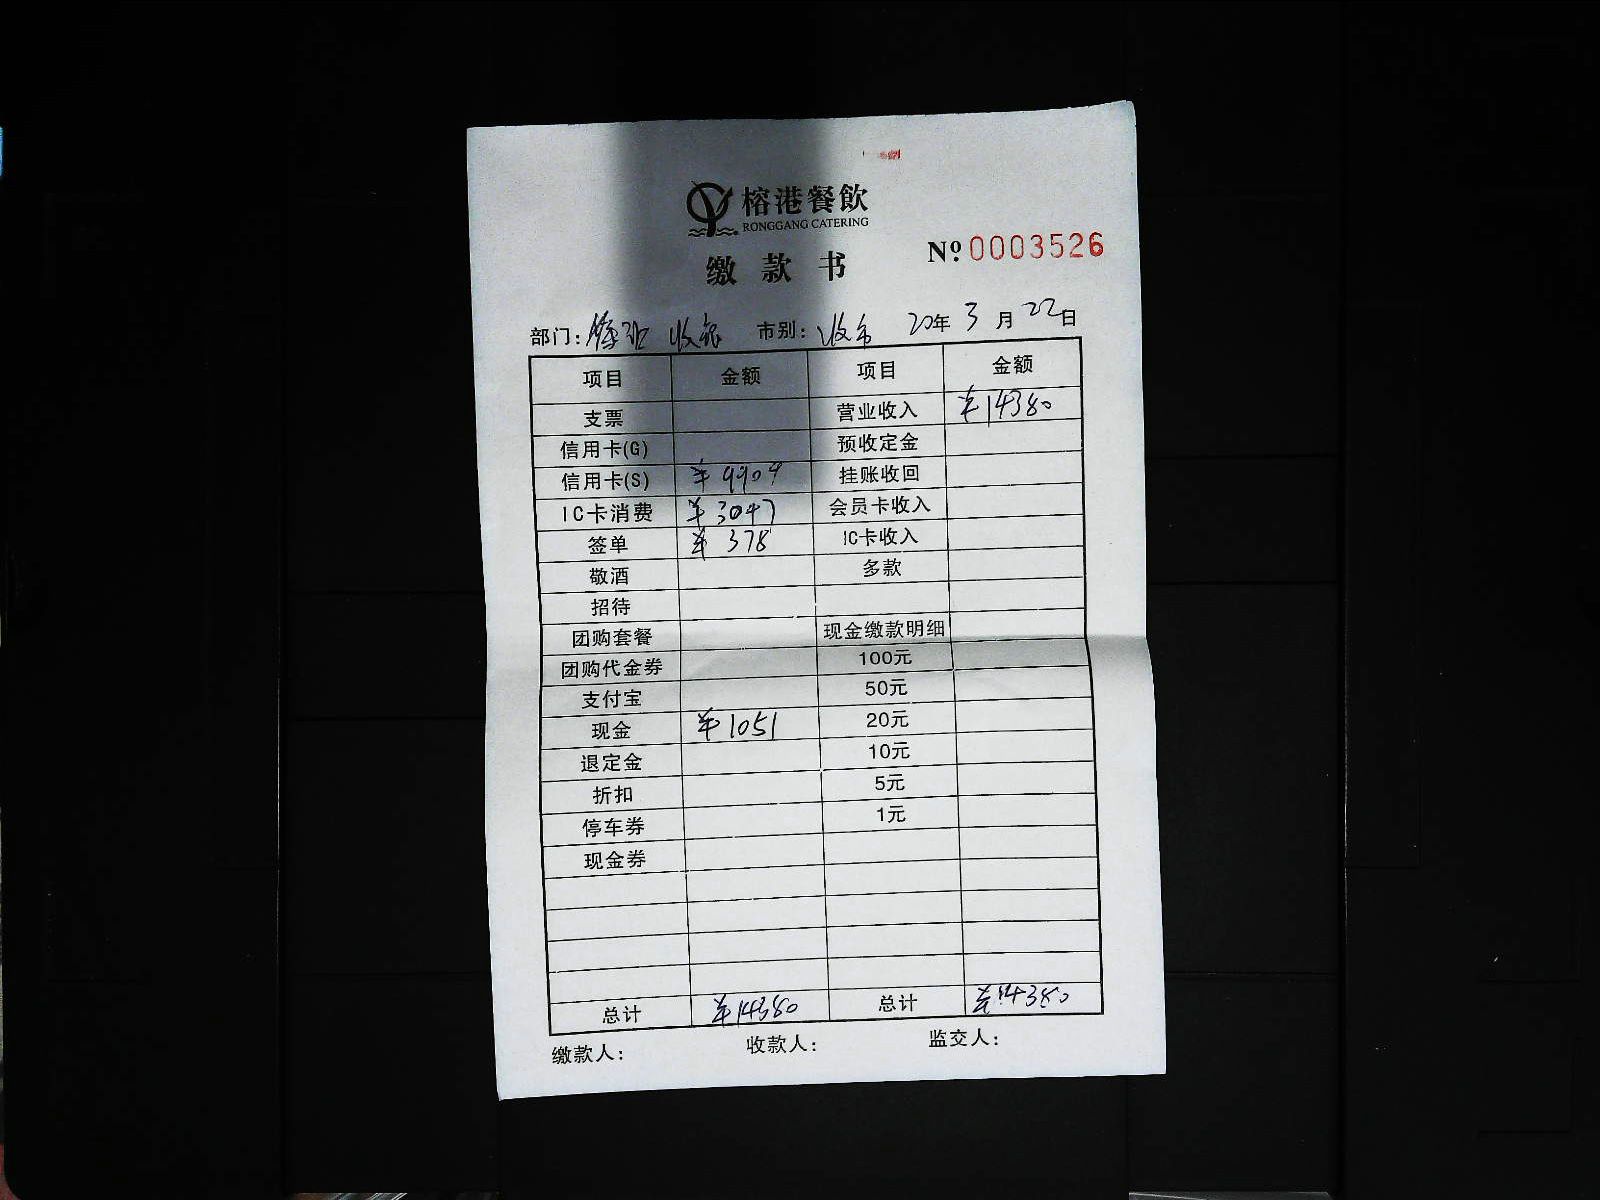 榕港餐飲
RONGGANG CATERING
缴款书
Nº 0003526
部门: 收银 市别: 收市 20年 3月 22日
项目 金额 项目 金额
支票 营业收入 ¥14380
信用卡(G) 预收定金
信用卡(S) ¥9904 挂账收回
IC卡消费 ¥3047 会员卡收入
签单 ¥378 IC卡收入
敬酒 多款
招待
团购套餐 现金缴款明细
团购代金券 100元
支付宝 50元
现金 ¥1051 20元
退定金 10元
折扣 5元
停车券 1元
现金券
总计 ¥14380 总计 ¥14380
缴款人: 收款人: 监交人: